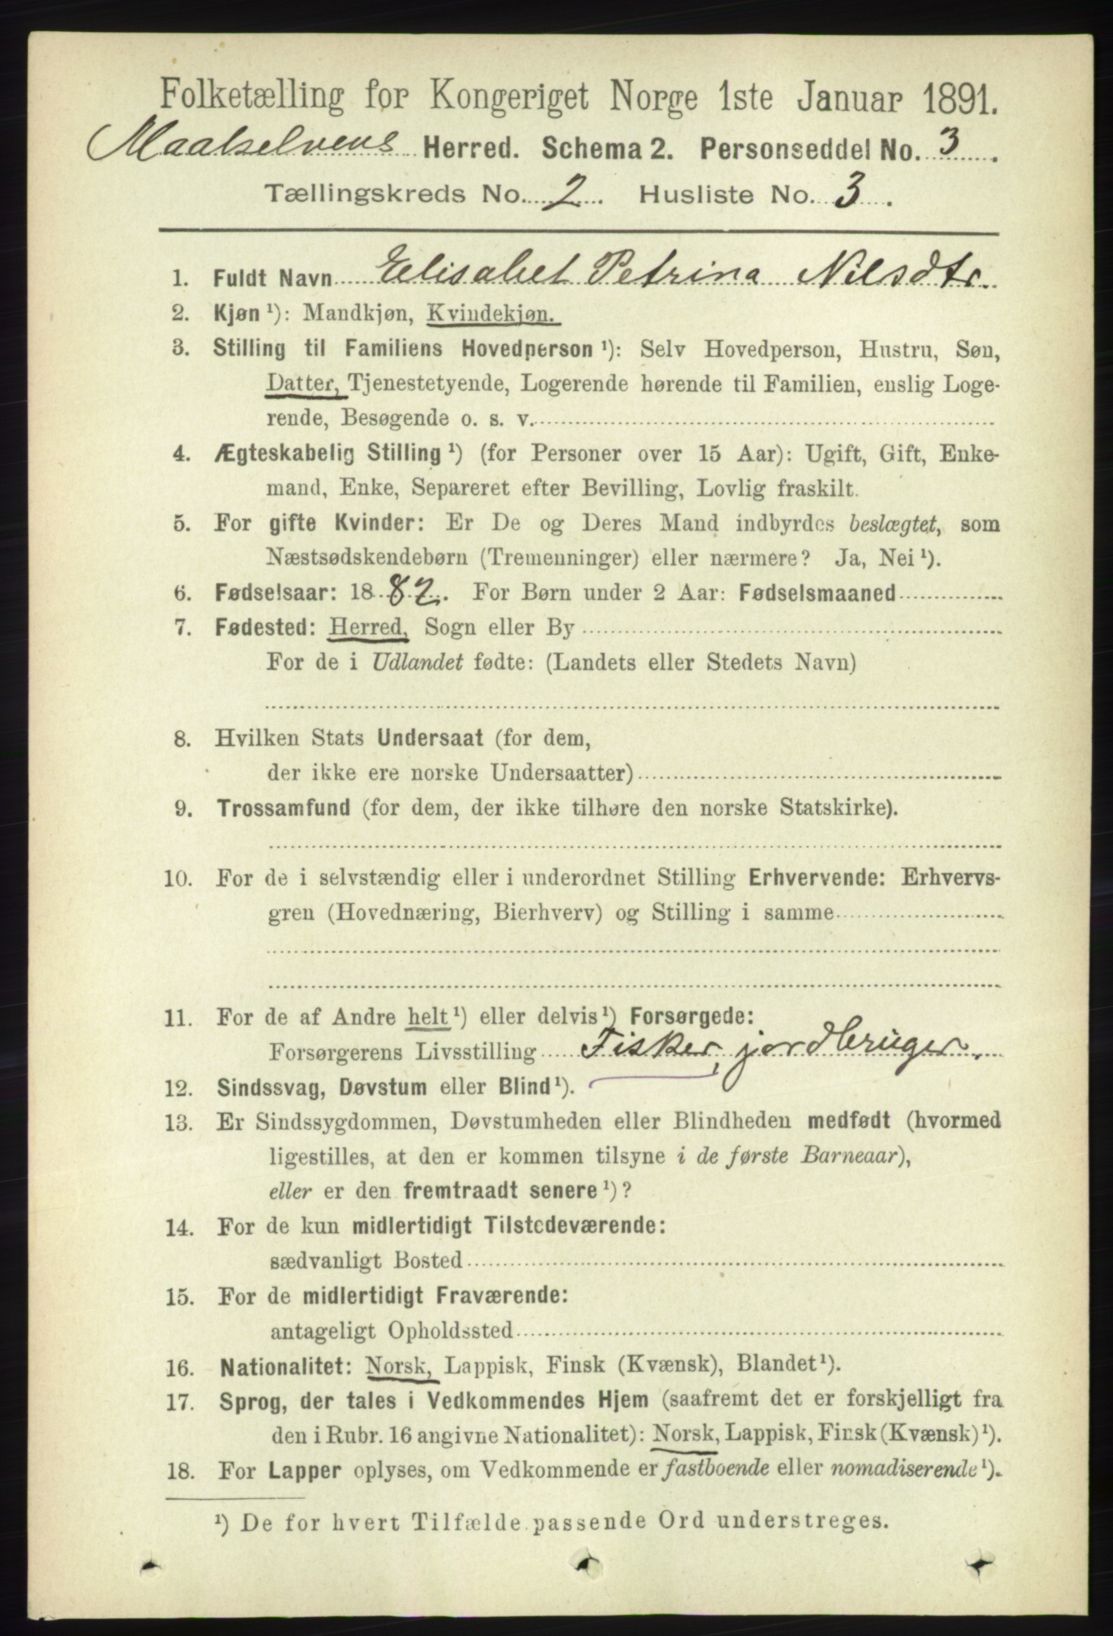 Folketælling for Kongeriget Norge 1ste Januar 1891.
Maalselvens Herred. Schema 2. Personseddel No. 3.
Tællingskreds No. 2. Husliste No. 3.
1. Fuldt Navn Elisabet Petrina Nilsdtr.
2. Kjøn ¹): Mandkjøn, Kvindekjøn.
3. Stilling til Familiens Hovedperson ¹): Selv Hovedperson, Hustru, Søn,
Datter, Tjenestetyende, Logerende hørende til Familien, enslig Loge-
rende, Besøgende o. s. v.
4. Ægteskabelig Stilling ¹) (for Personer over 15 Aar): Ugift, Gift, Enke-
mand, Enke, Separeret efter Bevilling, Lovlig fraskilt.
5. For gifte Kvinder: Er De og Deres Mand indbyrdes beslægtet, som
Næstsødskendebørn (Tremenninger) eller nærmere? Ja, Nei ¹).
6. Fødselsaar: 1882. For Børn under 2 Aar: Fødselsmaaned
7. Fødested: Herred, Sogn eller By
For de i Udlandet fødte: (Landets eller Stedets Navn)
8. Hvilken Stats Undersaat (for dem,
der ikke ere norske Undersaatter)
9. Trossamfund (for dem, der ikke tilhøre den norske Statskirke).
10. For de i selvstændig eller i underordnet Stilling Erhvervende: Erhvervs-
gren (Hovednæring, Bierhverv) og Stilling i samme
11. For de af Andre helt ¹) eller delvis ¹) Forsørgede:
Forsørgerens Livsstilling Fisker, jordbruger.
12. Sindssvag, Døvstum eller Blind ¹).
13. Er Sindssygdommen, Døvstumheden eller Blindheden medfødt (hvormed
ligestilles, at den er kommen tilsyne i de første Barneaar),
eller er den fremtraadt senere ¹)?
14. For de kun midlertidigt Tilstedeværende:
sædvanligt Bosted
15. For de midlertidigt Fraværende:
antageligt Opholdssted
16. Nationalitet: Norsk, Lappisk, Finsk (Kvænsk), Blandet ¹).
17. Sprog, der tales i Vedkommendes Hjem (saafremt det er forskjelligt fra
den i Rubr. 16 angivne Nationalitet): Norsk, Lappisk, Finsk (Kvænsk) ¹).
18. For Lapper oplyses, om Vedkommende er fastboende eller nomadiserende ¹).
¹) De for hvert Tilfælde passende Ord understreges.